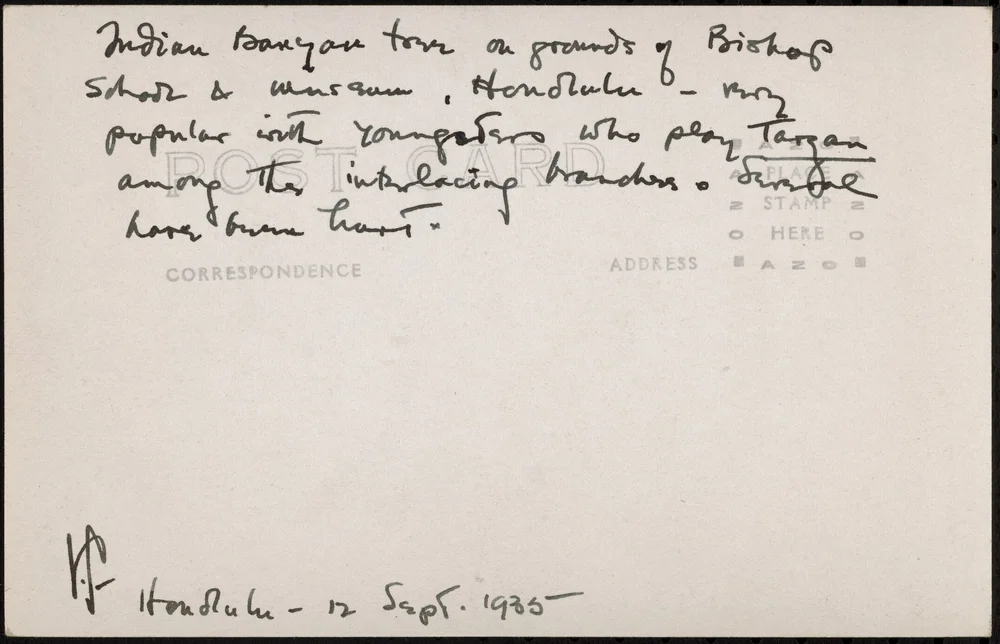 Indian Banyan tree on grounds of Bishop
School & museum, Honolulu - very
popular with youngsters who play Tarzan
among the interlacing branches. Several
have been hurt.
POST CARD
PLACE
STAMP
HERE
AZO
CORRESPONDENCE
ADDRESS
Honolulu - 12 Sept. 1935